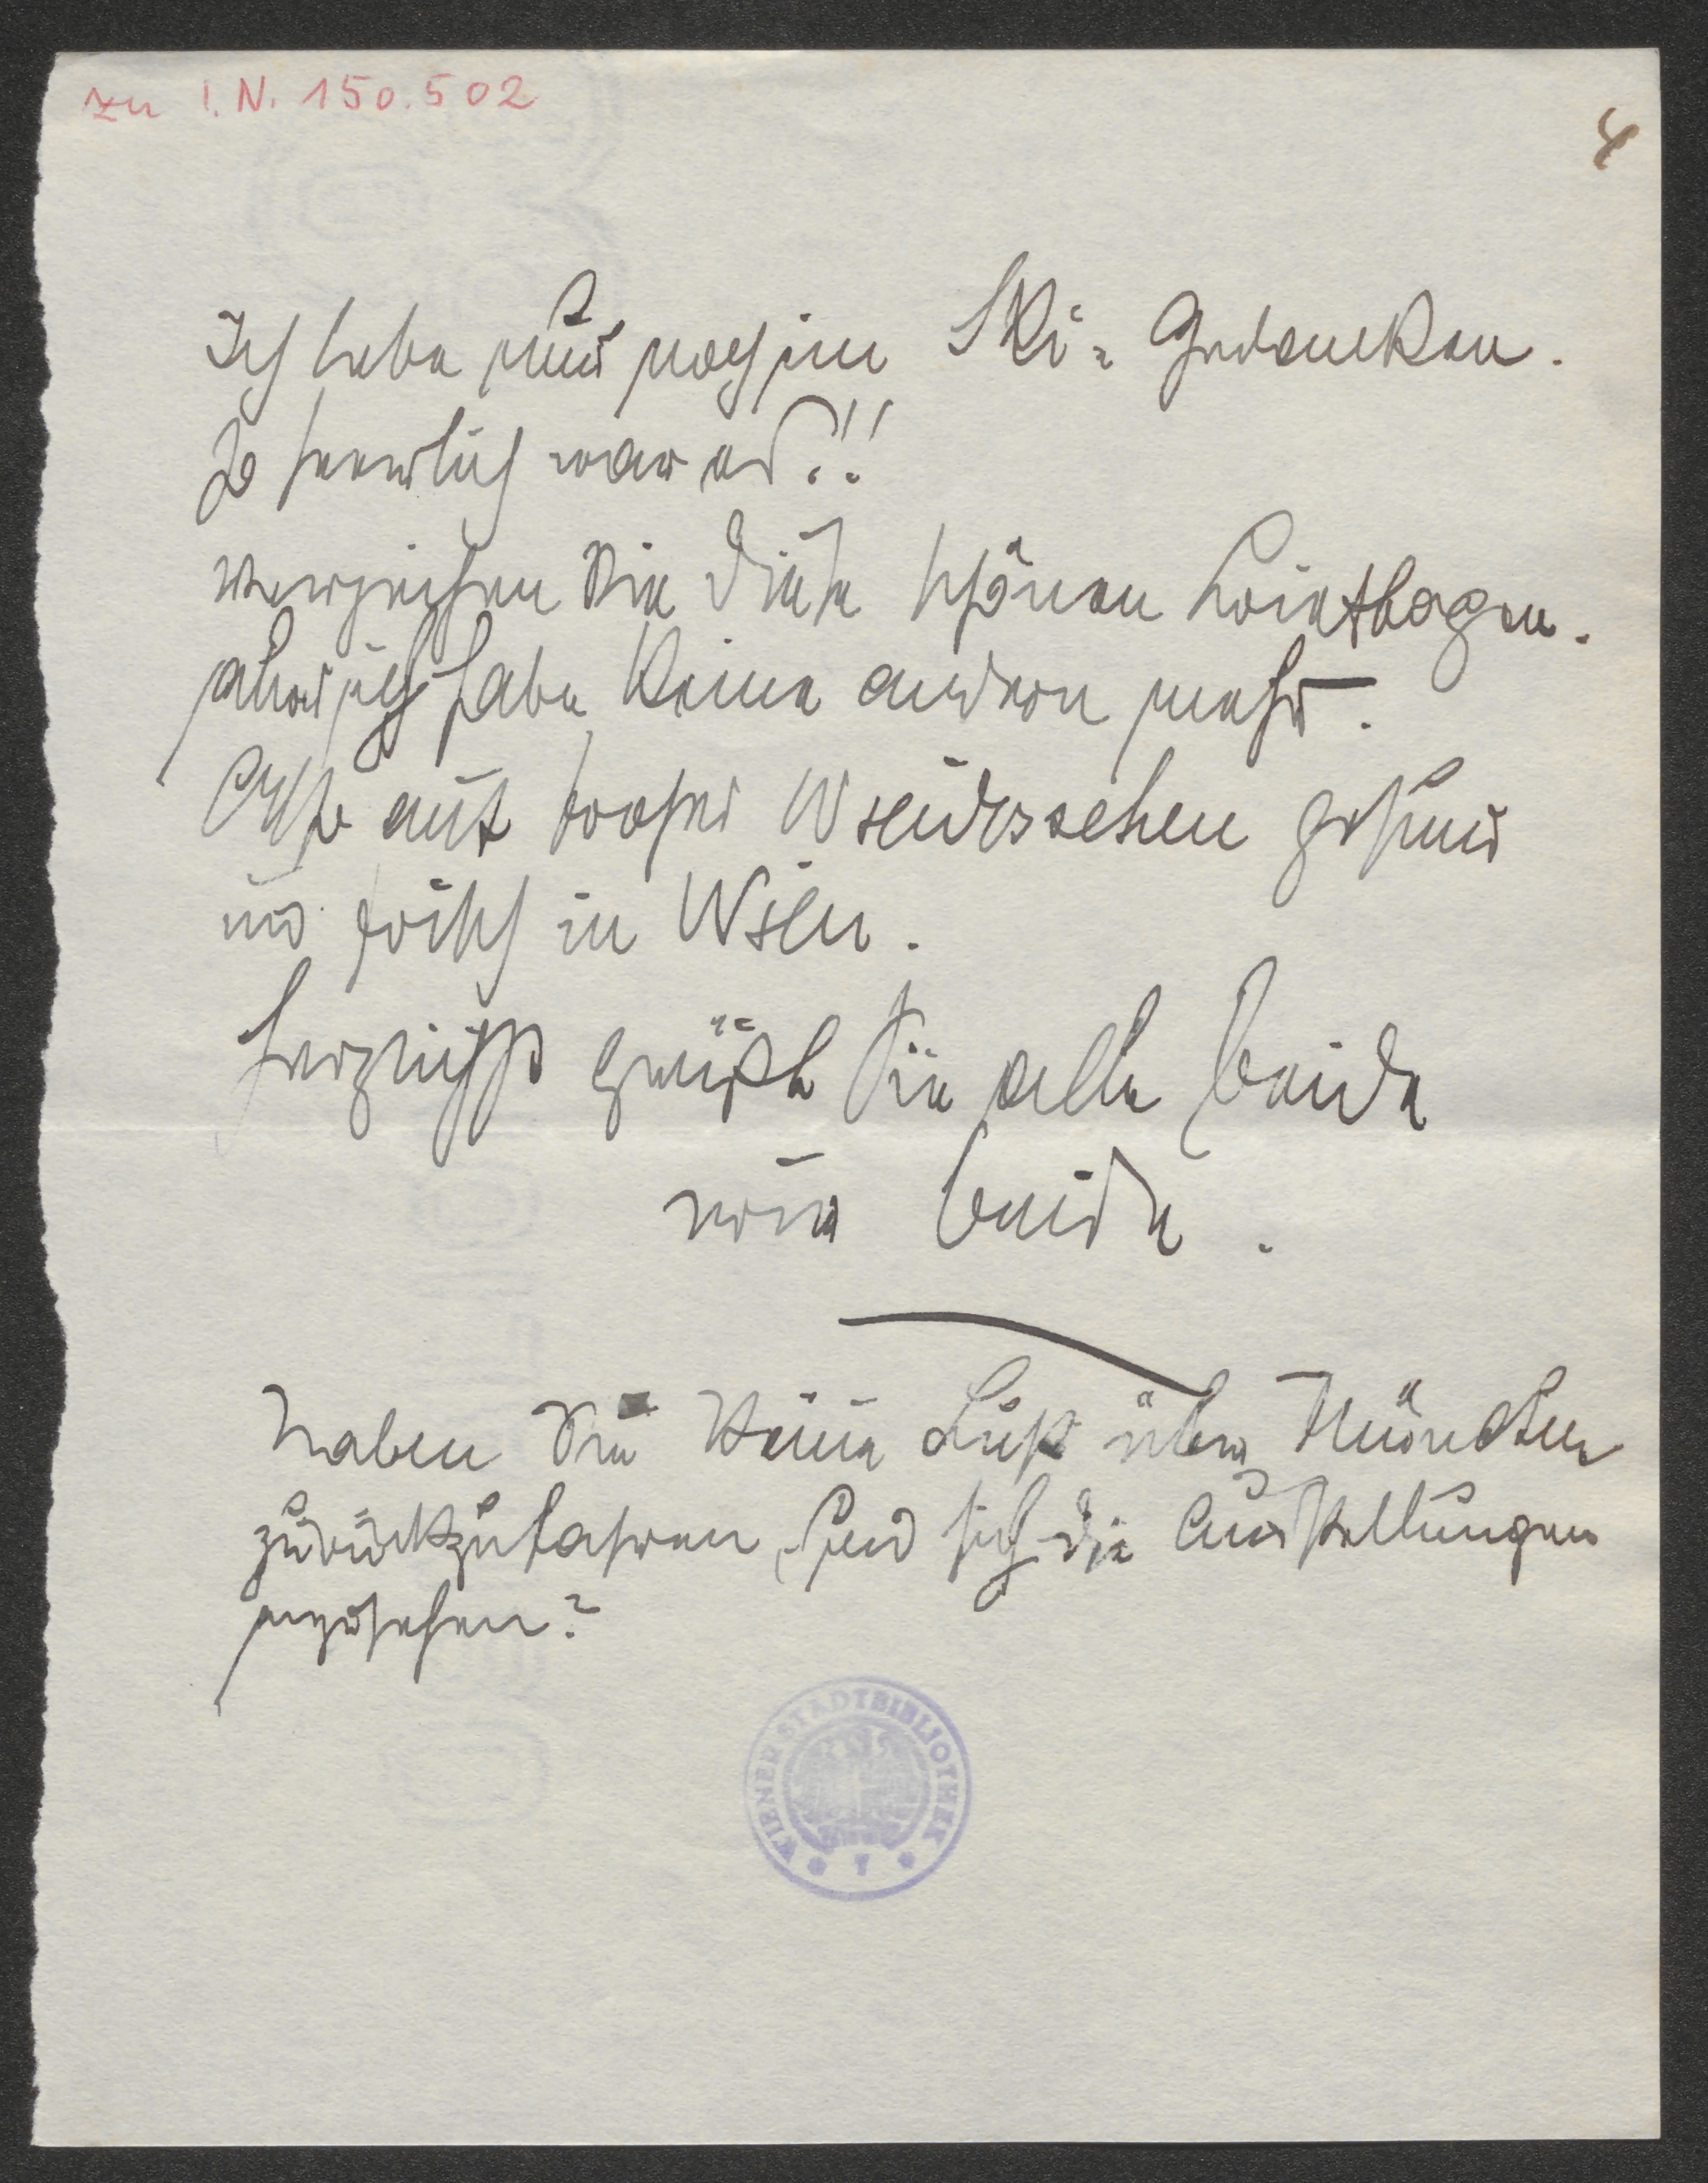 zu I.N. 150.502
4
Ich lebe nur noch in Ski-Gedanken.
So herrlich war es!!
Verzeihen Sie diese schönen Briefbogen.
aber ich habe keine andern mehr.
Also auf frohes Wiedersehen gesund
und frisch in Wien.
Herzlichst grüßt Sie alle beide
wir beide.
Haben Sie keine Lust über München
zurückzufahren und sich die Ausstellungen
anzusehen?
WIENER STADTBIBLIOTHEK